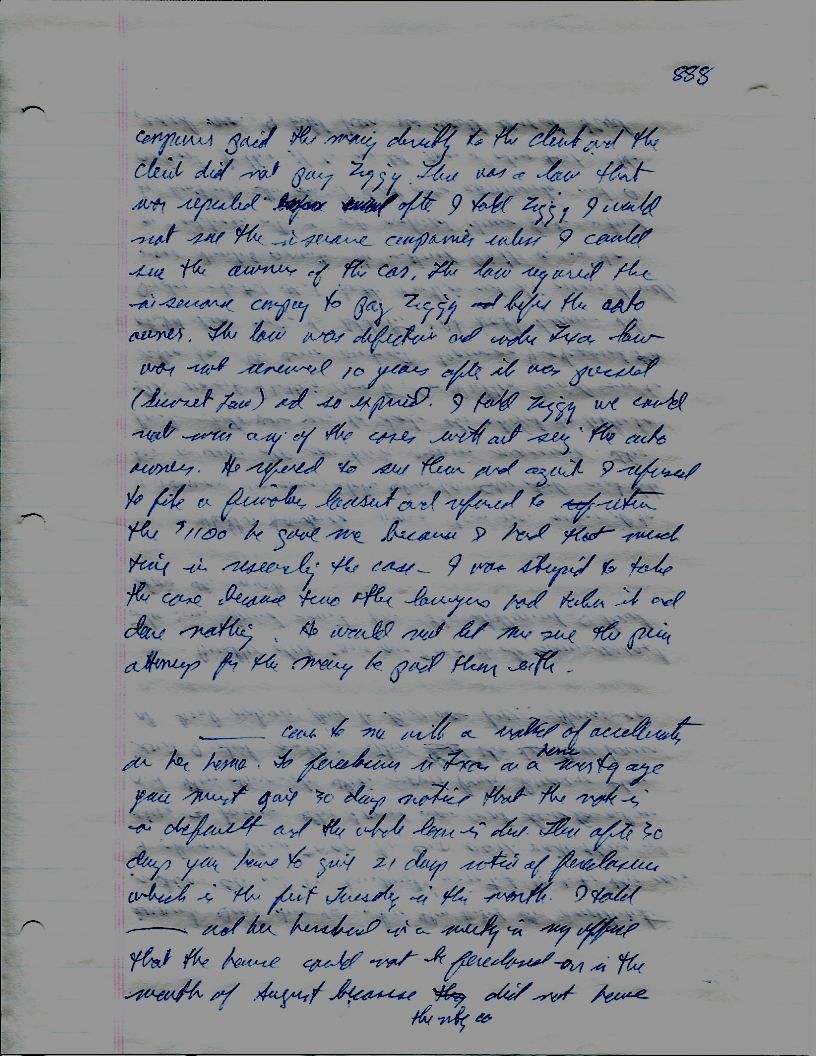 888
companies paid the money directly to the client and the
client did not pay Ziggy. There was a law that
was repealed after I told Ziggy I would
not sue the insurance companies unless I could
sue the owner of the car. The law required the
insurance company to pay Ziggy before the auto
owner. The law was defective and under Texas law
was not renewed 10 years after it was passed
(Sunset Law) and so expired. I told Ziggy we could
not win any of the cases without suing the auto
owners. He refused to sue them and again I refused
to file a frivolous lawsuit and refused to return
the $1100 he gave me because I had that much
time in researching the case - I was stupid to take
the case because two other lawyers had taken it and
done nothing. He would not let me sue the prior
attorneys for the money he paid them either.
______ came to me with a notice of acceleration
on her home. To foreclose in Texas on a home mortgage
you must give 30 days notice that the note is
in default and the whole loan is due. Then after 30
days you have to give 21 days notice of foreclosure
which is the first Tuesday in the month. I told
______ and her husband in a meeting in my office
that the house could not be foreclosed on in the
month of August because they did not have
the mtg co